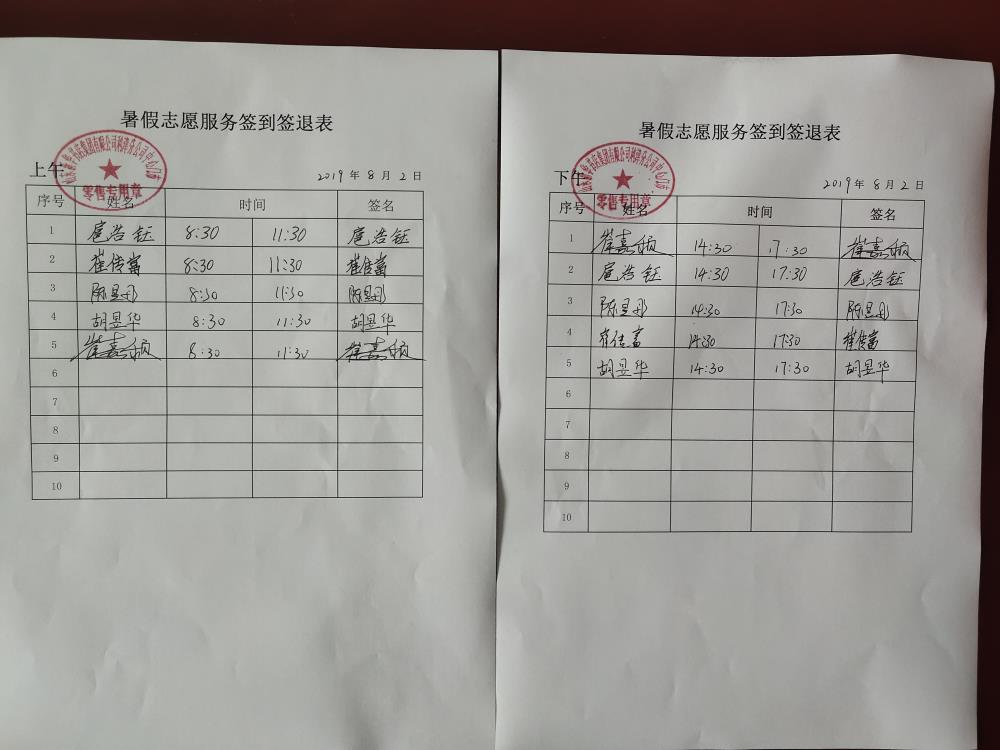 暑假志愿服务签到签退表
上午
2019年8月2日
序号 姓名 时间 签名
1 扈浩钰 8:30 11:30 扈浩钰
2 崔传富 8:30 11:30 崔传富
3 陈昱彤 8:30 11:30 陈昱彤
4 胡昱华 8:30 11:30 胡昱华
5 崔嘉 8:30 11:30 崔嘉
6
7
8
9
10
零售专用章
暑假志愿服务签到签退表
下午
2019年8月2日
序号 姓名 时间 签名
1 崔嘉 14:30 17:30 崔嘉
2 扈浩钰 14:30 17:30 扈浩钰
3 陈昱彤 14:30 17:30 陈昱彤
4 崔传富 14:30 17:30 崔传富
5 胡昱华 14:30 17:30 胡昱华
6
7
8
9
10
零售专用章